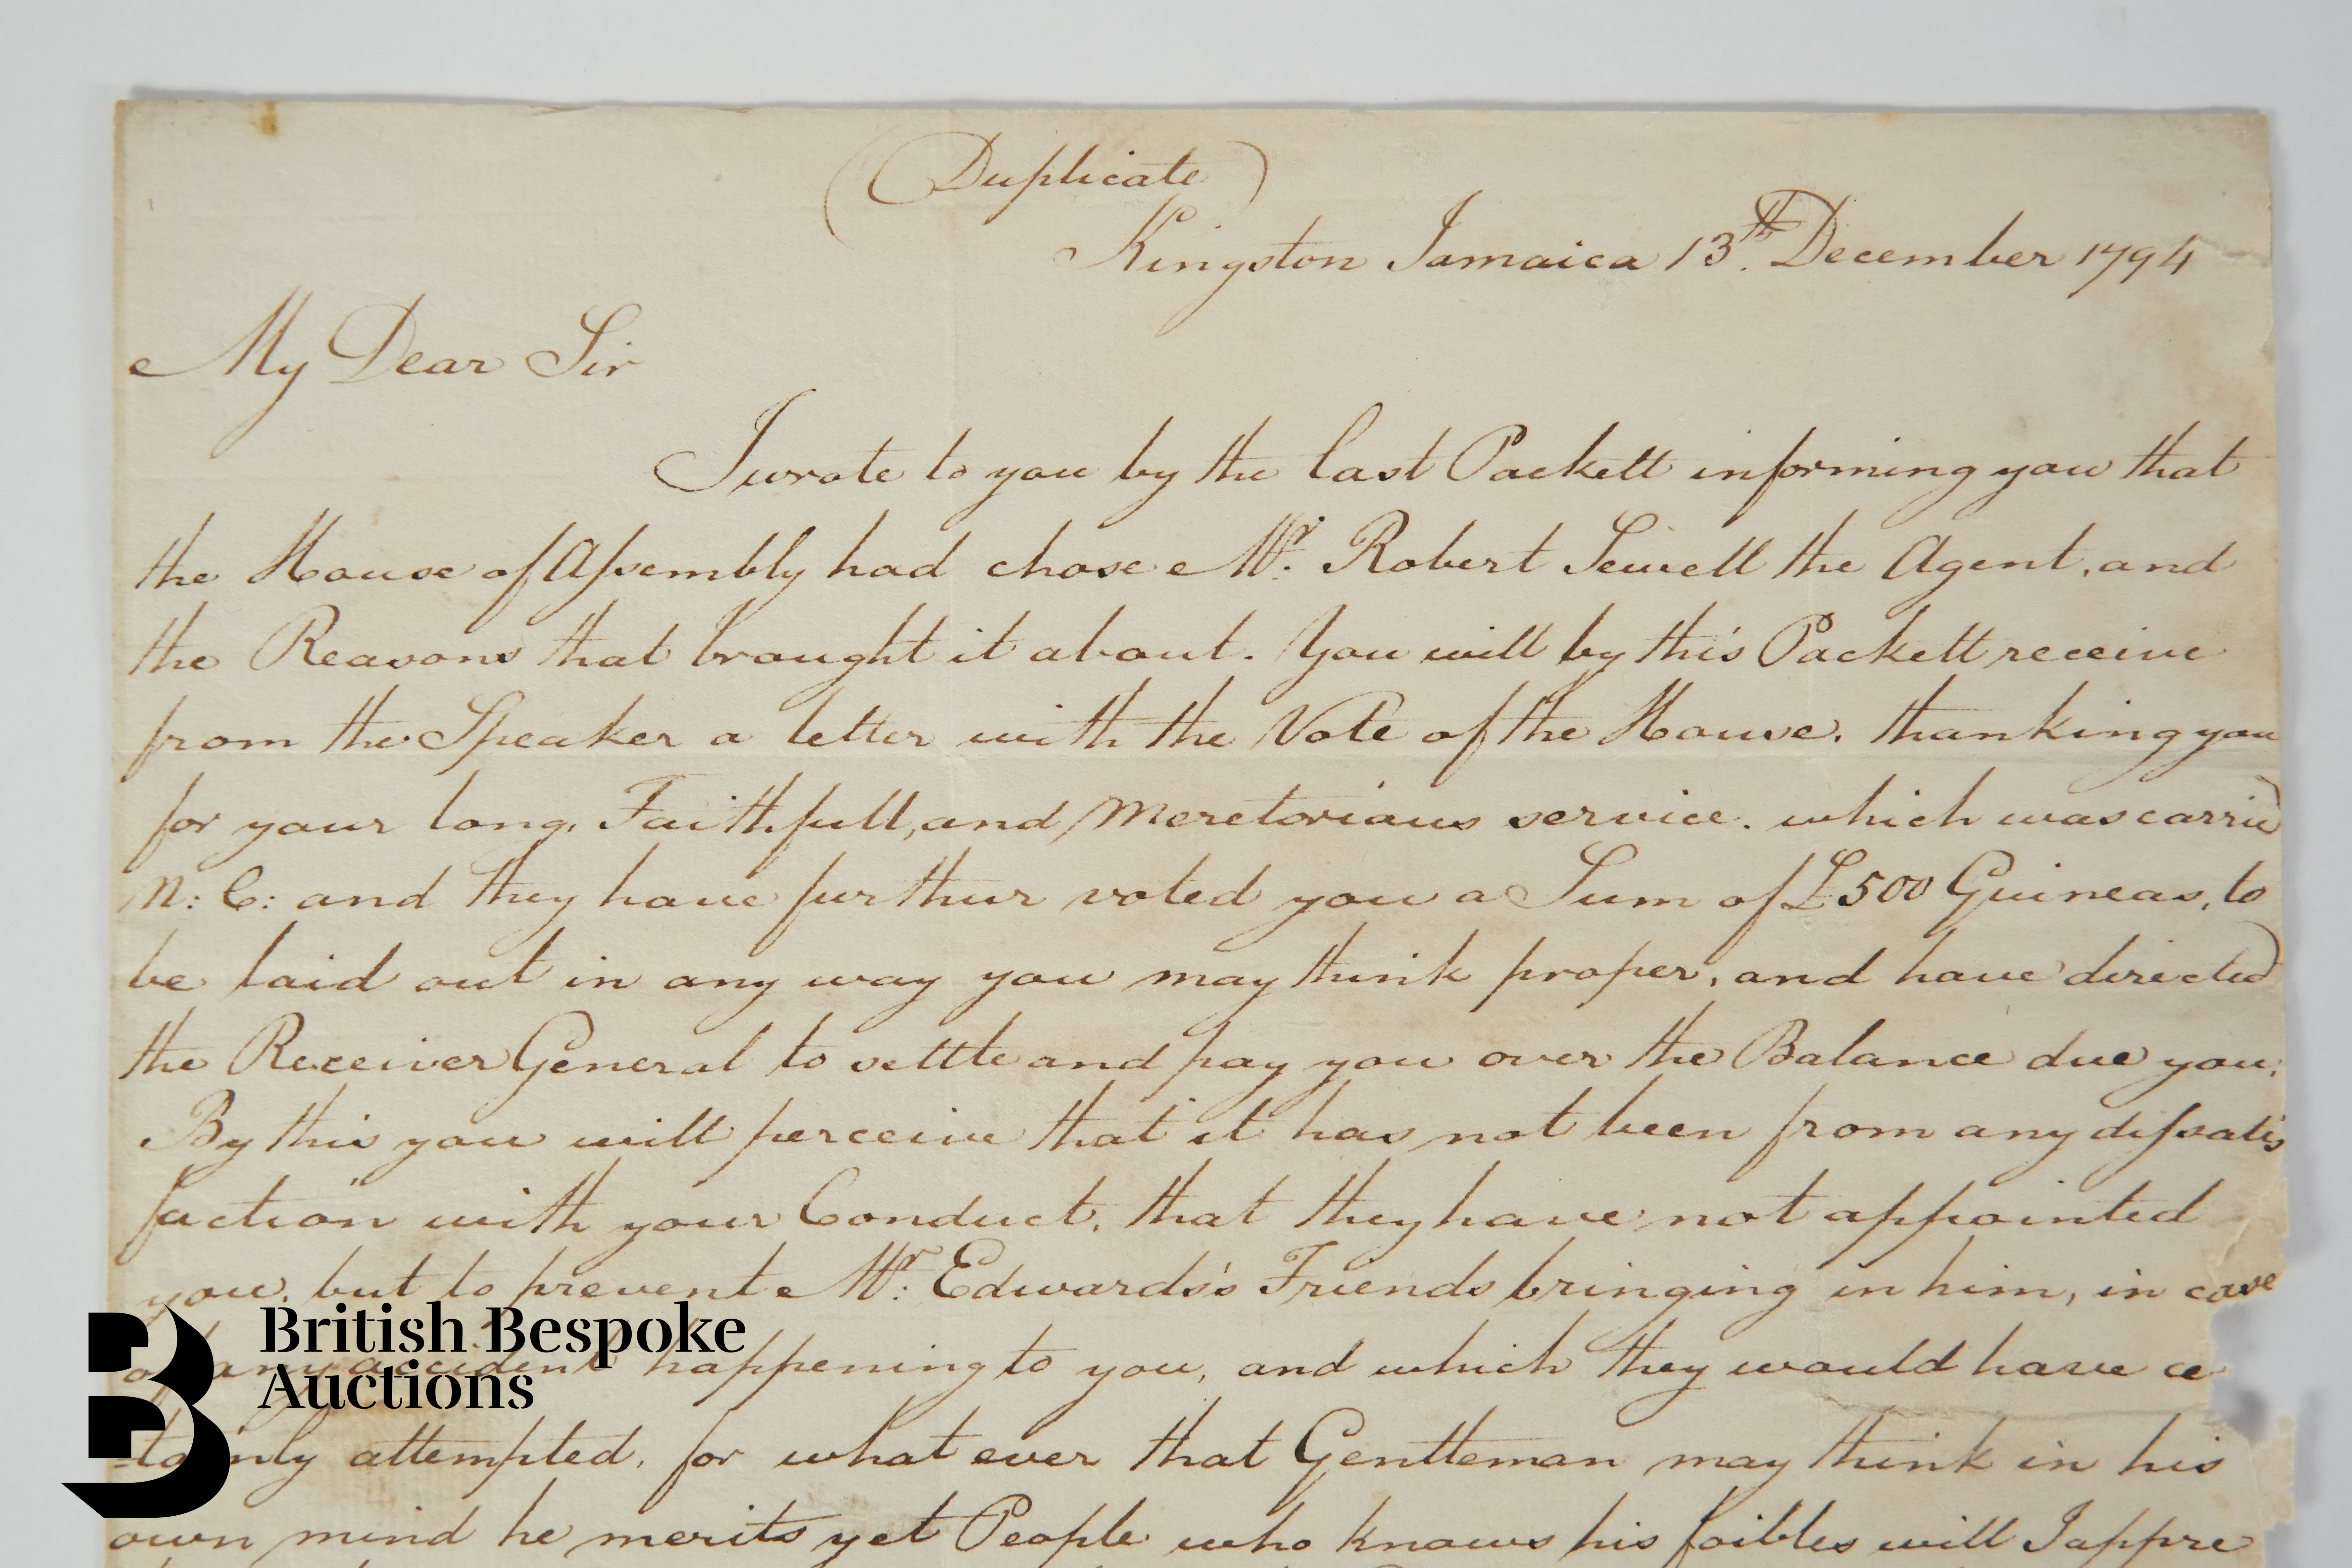 (Duplicate)
Kingston Jamaica 13th. December 1794
My Dear Sir
I wrote to you by the last Packett informing you that
the House of Assembly had chose Mr. Robert Sewell the Agent, and
the Reasons that brought it about. You will by this Packett receive
from the Speaker a letter with the Vote of the House. thanking you
for your long, Faithfull, and Meretorious service. which was carried
N: C: and they have further voted you a Sum of £500 Guineas, to
be laid out in any way you may think proper, and have directed
the Receiver General to settle and pay you over the Balance due you.
By this you will perceive that it has not been from any dissatis
faction with your Conduct, that they have not appointed
you, but to prevent Mr. Edwards's Friends bringing in him, in case
of any accident happening to you, and which they would have ce
-tainly attempted, for what ever that Gentleman may think in his
own mind he merits yet People who knows his foibles will I appre
British Bespoke
Auctions